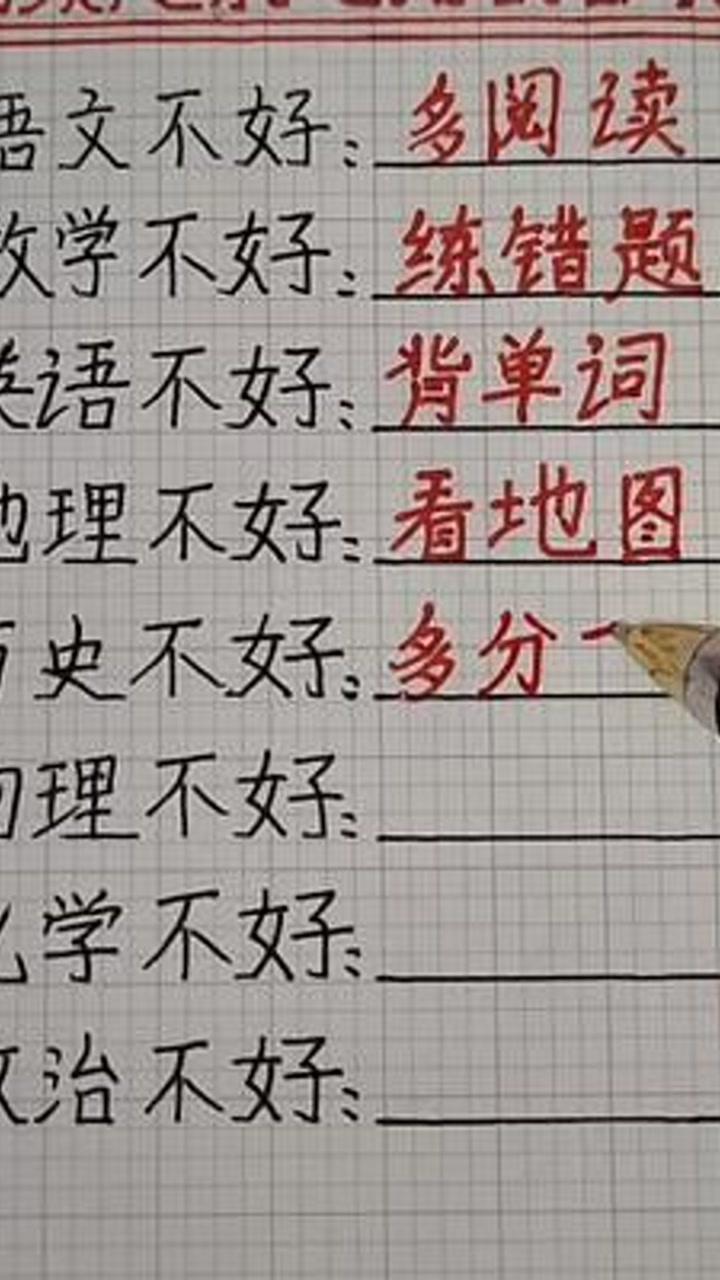 语文不好：多阅读
数学不好：练错题
英语不好：背单词
地理不好：看地图
历史不好：多分
物理不好：
化学不好：
政治不好：